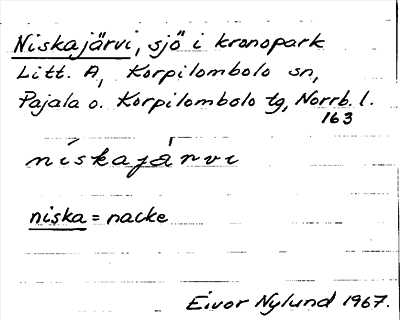 Niskajärvi, sjö i kronopark
Litt. A, Korpilombolo sn,
Pajala o. Korpilombolo tg, Norrb. l.
163
nískajárvi
niska = nacke
Eivor Nylund 1967.